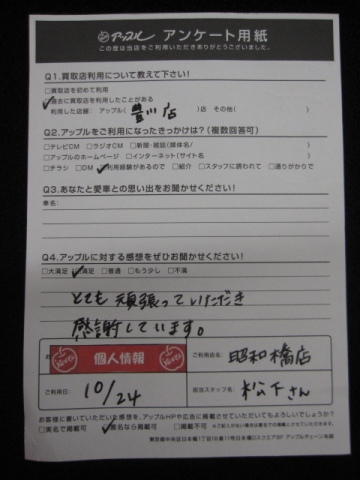 アップル アンケート用紙
この度は当店をご利用いただきありがとうございました。
Q1.買取店利用について教えて下さい!
□買取店を初めて利用
□過去に買取店を利用したことがある
利用した店舗: アップル( 豊川店 )店 その他( )
Q2.アップルをご利用になったきっかけは?(複数回答可)
□テレビCM □ラジオCM □新聞・雑誌(媒体名/ )
□アップルのホームページ □インターネット(サイト名 )
□チラシ □DM □利用経験があるので □紹介 □スタッフに誘われて □通りがかりで
Q3.あなたと愛車との思い出をお聞かせください!
車名:
Q4.アップルに対する感想をぜひお聞かせください!
□大満足 □満足 □普通 □もう少し □不満
とても頑張っていただき
感謝しています。
個人情報
ご利用店名: 昭和橋店
ご利用日: 10/24
担当スタッフ名: 松下さん
お客様に書いていただいた感想を、アップルHPや広告に掲載させていただいてもよろしいでしょうか?
□実名で掲載可 □匿名なら掲載可 □掲載不可